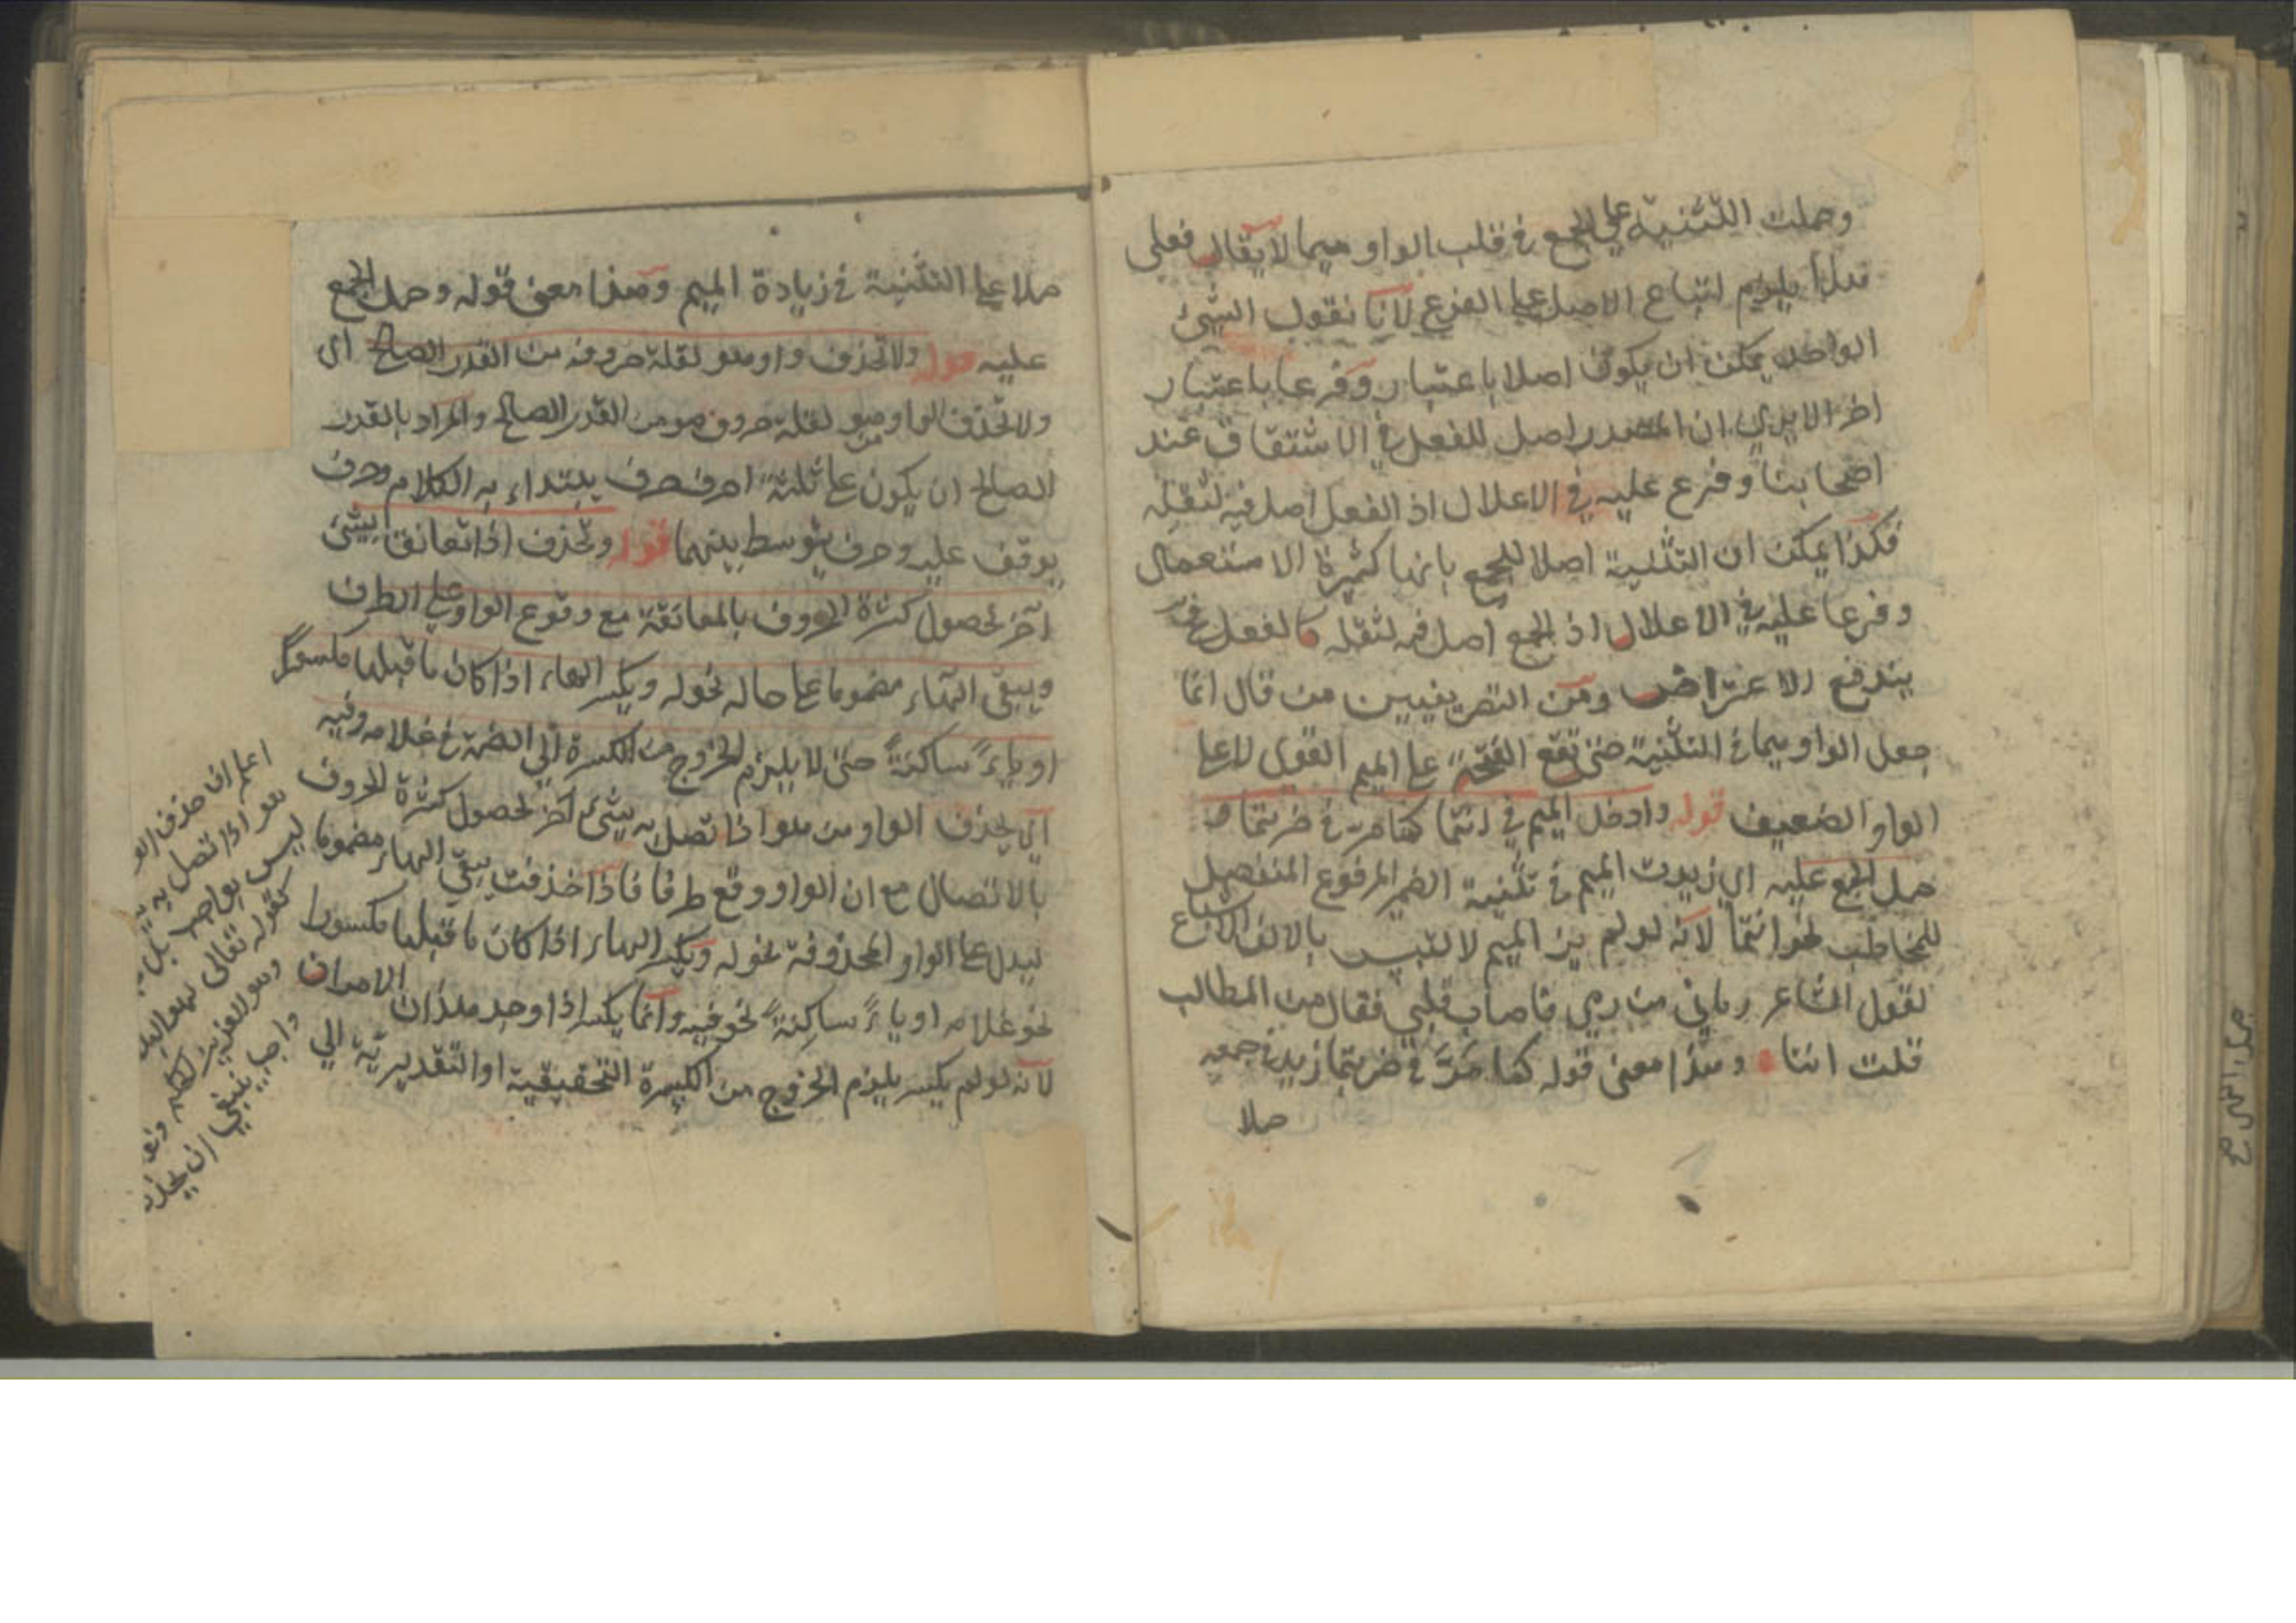 وحملت التثنية على الجمع في قلب الواو ميما لا يقال فعلى
هذا يلزم اتباع الاصل على الفرع لانا نقول الشيئ
الواحد يمكن ان يكون اصلا باعتبار وفرعا باعتبار
اخر الا يرى ان المصدر اصل للفعل في الاشتقاق عند
اصحابنا وفرع عليه في الاعلال اذ الفعل اصل فيه لثقله
فكذا يمكن ان التثنية اصلا للجمع بانها كثيرة الاستعمال
وفرعا عليه في الاعلال اذ الجمع اصل فيه لثقله كالفعل
يندفع الاعتراض ومن التصريفيين من قال انما
جعل الواو ميما في التثنية حتى تقع الفتحة على الميم القوي لا على
الواو الضعيف قوله وادخل الميم في انتما كما مر في ضربتما و
حمل الجمع عليه اي زيدت الميم في تثنية الضمير المرفوع المنفصل
للمخاطب نحو انتما لانه لو لم يز الميم لالتبس بالالف الاشباع
لقول الشاعر رماني من رمى فاصاب قلبي فقال من المطالب
قلت انتا وهذا معنى قوله كما مر في ضربتما زيد في جمعه
حملا
حملا على التثنية في زيادة الميم وهذا معنى قوله وحمل الجمع
عليه قوله ولا تحذف واو هو لقلة حروفه من القدر الصالح اى
ولا تحذف الواو من هو لقلة حروف هو من القدر الصالح والمراد بالقدر
الصالح ان يكون على ثلثة احرف حرف يبتداء به الكلام وحرف
يوقف عليه وحرف يتوسط بينهما قوله وتحذف اذا تعانق بشيئ
آخر لحصول كثرة الحروف بالمعانقة مع وقوع الواو على الطرف
ويبقى الهاء مضموما على حاله نحو له ويكسر الهاء اذا كان ما قبلها مكسورا
او ياءً ساكنةً حتى لا يلزم الخروج من الكسرة الى الضمة في غلامه وفيه
اي يحذف الواو من هو اذا تصل به شيئ آخر لحصول كثرة الحروف
بالاتصال مع ان الواو وقع طرفا فاذا حذفت يبقى الهاء مضموما
ليدل على الواو المحذوفة نحو له ويكسر الهاء اذا كان ما قبلها مكسورا
نحو غلامه او ياءً ساكنةً نحو فيه وانما يكسر اذا وجد هذان الامران
لانه لو لم يكسر يلزم الخروج من الكسرة التحقيقية او التقديرية الى
اعلم ان حذف
هو اذا تصل به
ليس بواجب بل
كقوله تعالى لهو
وهو العزيز
واجبا ينبغي ان